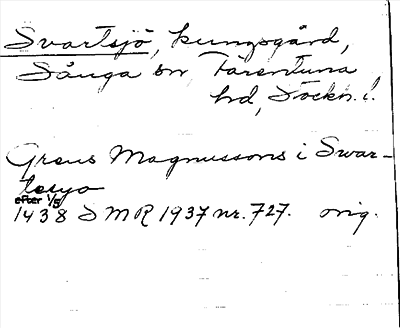 Svartsjö, kungsgård,
Sånga sn Färentuna
hd, Stockh. l.
Greus Magnussons i Swar-
tesyo
efter 1/5
1438 SMR 1937 nr. 727. orig.